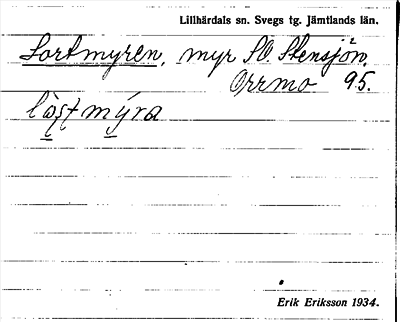 Lillhärdals sn. Svegs tg. Jämtlands län.
Lortmyren, myr SO. Stensjön,
Orrmo 95.
Erik Eriksson 1934.